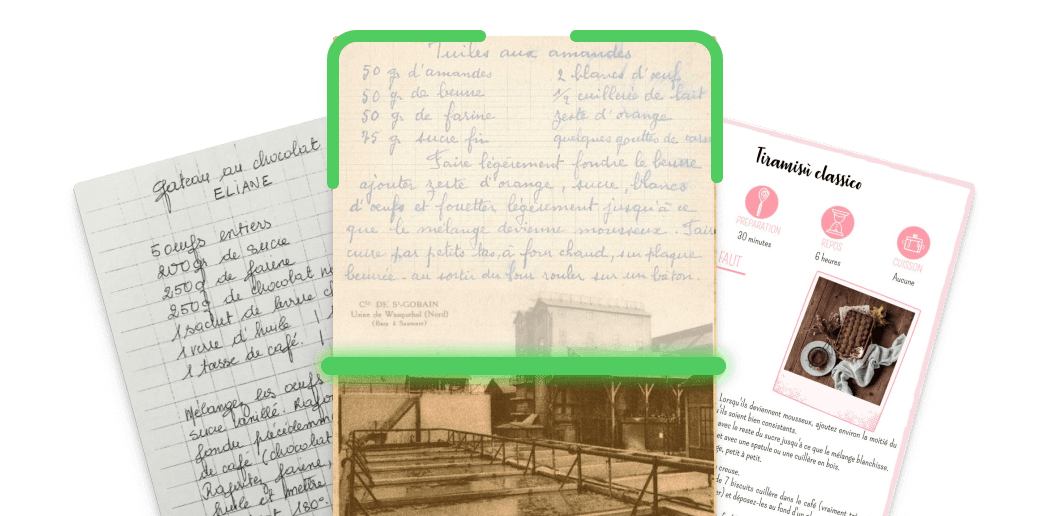 gateau au chocolat
ELIANE
5 oeufs entiers
200 gr de sucre
250 g de farine
250 g de chocolat
1 sachet de levure
1 verre d'huile
1 tasse de café.
Mélanger les oeufs
sucre vanillé.
fondu
de café (chocolat
Rajouter farine,
huile et mettre
180°
Tuiles aux amandes
50 gr d'amandes
50 g. de beurre
50 g. de farine
75 g. sucre fin
2 blancs d'œufs
1/2 cuillerée de lait
zeste d'orange
quelques gouttes de
Faire légèrement fondre le beurre
ajouter zeste d'orange, sucre, blancs
d'œufs et fouetter légèrement jusqu'à ce
que le mélange devienne mousseux. Faire
cuire par petits tas, à four chaud, sur plaque
beurrée. au sortir du four rouler sur un bâton.
Cie DE St-GOBAIN
Usine de Wasquehal (Nord)
Tiramisù classico
PREPARATION
30 minutes
REPOS
6 heures
CUISSON
Aucune
FAUT
Lorsqu'ils deviennent mousseux, ajoutez environ la moitié du
ils soient bien consistants.
avec le reste du sucre jusqu'à ce que le mélange blanchisse.
et avec une spatule ou une cuillère en bois.
ge, petit à petit.
creuse.
de 7 biscuits cuillère dans le café (vraiment
et déposez-les au fond d'un